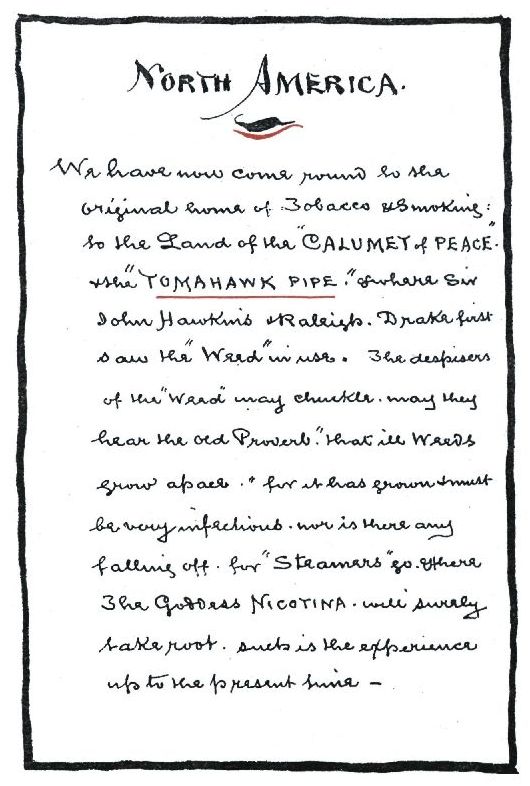 NORTH AMERICA.
We have now come round to the
original home of Tobacco & Smoking:
to the Land of the "CALUMET of PEACE"
& the "TOMAHAWK PIPE." & where Sir
John Hawkins & Raleigh. Drake first
saw the "Weed" in use. The despisers
of the "Weed" may chuckle. may they
hear the old Proverb. "that ill Weeds
grow apace." for it has grown & must
be very infectious. nor is there any
falling off. for "Steamers" go. & there
The Goddess NICOTINA. will surely
take root. such is the experience
up to the present time –